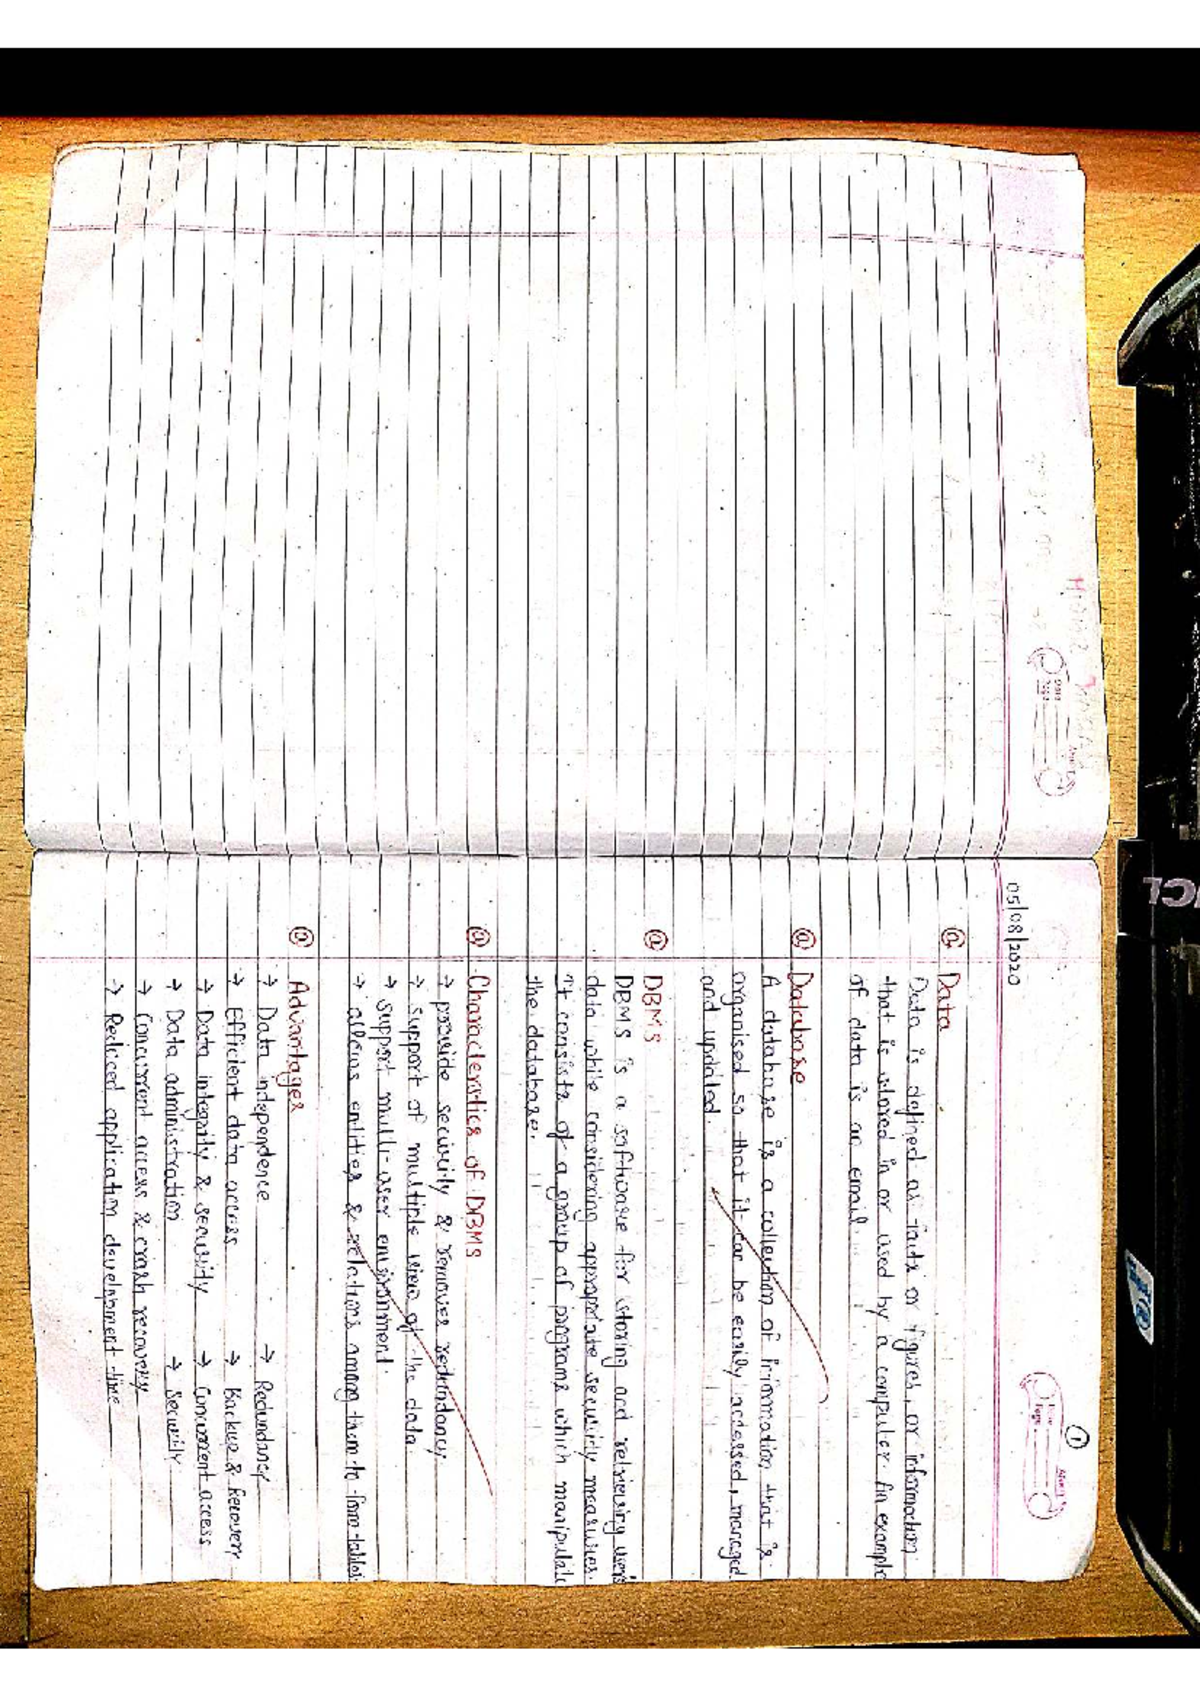 05/08/2020
1
@ Data
Data is defined as facts or figures, or information
that is stored in or used by a computer. An example
of data is an email.
@ Database
A database is a collection of information that is
organised so that it can be easily accessed, managed
and updated.
@ DBMS
DBMS is a software for storing and retrieving user's
data while considering appropriate security measures.
It consists of a group of programs which manipulate
the database.
@ Characteristics of DBMS
→ provide security & removes redundancy
→ support of multiple views of the data.
→ support multi-user environment.
→ allows entities & relations among them to form tables
@ Advantages
→ Data independence → Redundancy
→ Efficient data access → Backup & Recovery
→ Data integrity & security → Concurrent access
→ Data administration → Security
→ Concurrent access & crash recovery
→ Reduced application development time
hp